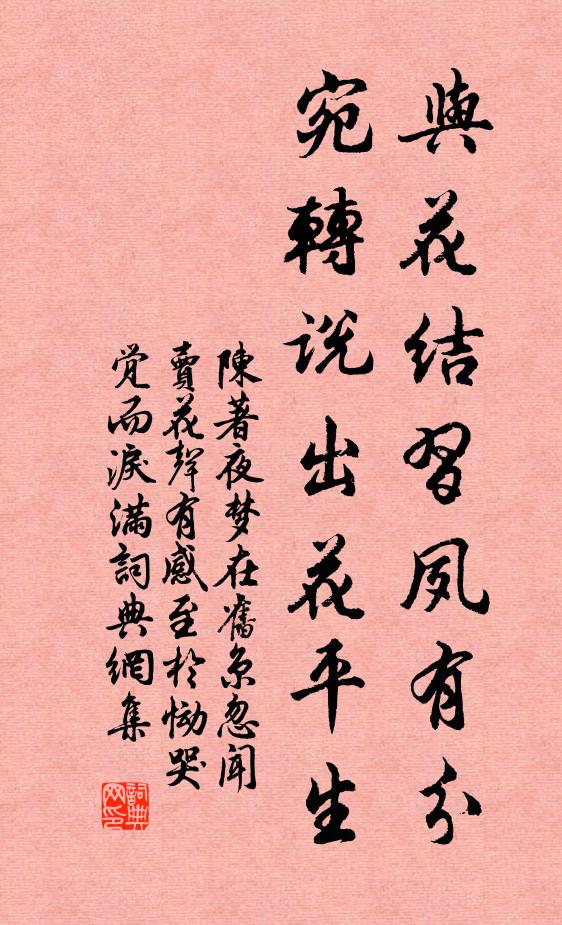 與花結習夙有分
宛轉説出花平生
陳著夜梦在舊京忽聞
賣花聲有感至於恸哭
覚而淚滿詞典網集
詞典网印